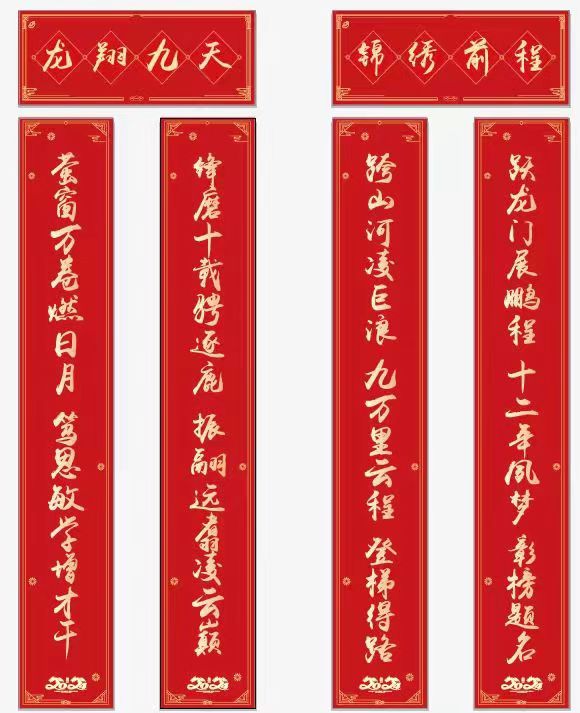 龙翔九天
锦绣前程
萤窗万卷燃日月 笃思敏学增才干
锋磨十载骋逐鹿 振翮远翥凌云巅
跨山河凌巨浪 九万里云程 登梯得路
跃龙门展鹏程 十二年夙梦 彰榜题名